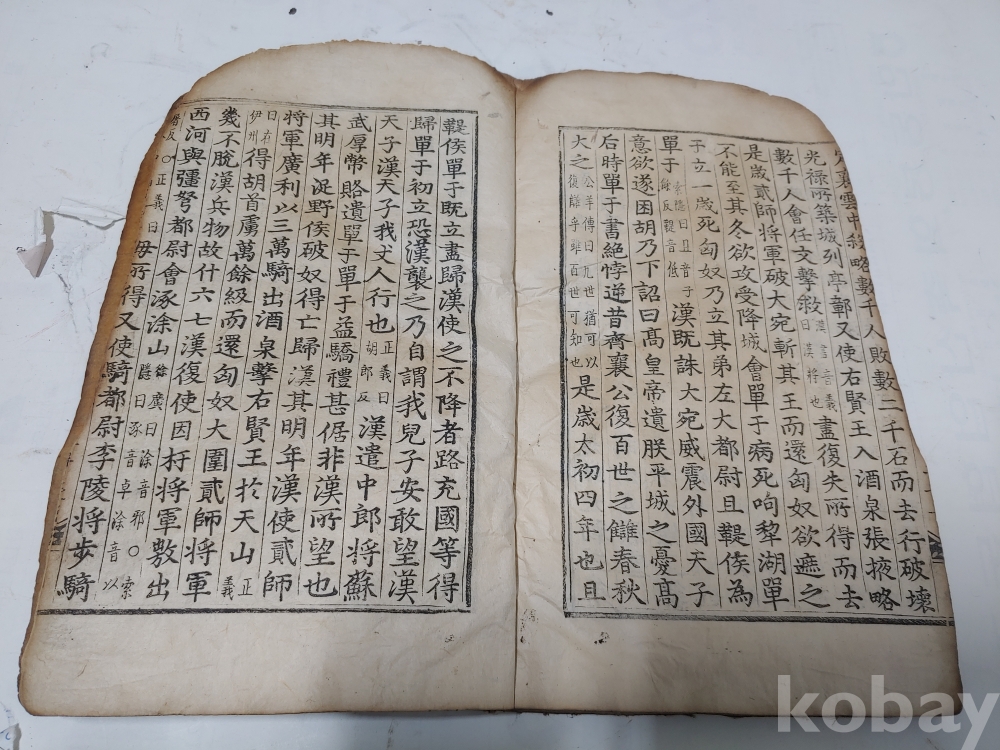 雲中殺略數千人敗數二千石而去行破壞
光祿所築城列亭鄣又使右賢王入酒泉張掖略
數千人會任文擊救漢書音義曰漢將也盡復失所得而去
是歲貳師將軍破大宛斬其王而還匈奴欲遮之
不能至其冬欲攻受降城會單于病死呴黎湖單
于立一歲死匈奴乃立其弟左大都尉且鞮侯為
單于索隱曰且音子余反鞮音低漢既誅大宛威震外國天子
意欲遂困胡乃下詔曰高皇帝遺朕平城之憂高
后時單于書絕悖逆昔齊襄公復百世之讎春秋
大之公羊傳曰九世猶可以復讎乎雖百世可知也是歲太初四年也且
鞮侯單于既立盡歸漢使之不降者路充國等得
歸單于初立恐漢襲之乃自謂我兒子安敢望漢
天子漢天子我丈人行也正義曰胡郎反漢遣中郎將蘇
武厚幣賂遺單于單于益驕禮甚倨非漢所望也
其明年浞野侯破奴得亡歸漢其明年漢使貳師
將軍廣利以三萬騎出酒泉擊右賢王於天山正義
曰在伊州得胡首虜萬餘級而還匈奴大圍貳師將軍
幾不脫漢兵物故什六七漢復使因杅將軍敖出
西河與彊弩都尉會涿涂山徐廣曰涂音邪○索隱曰涿音卓涂音以
奢反○正義曰毋所得又使騎都尉李陵將步騎
kobay